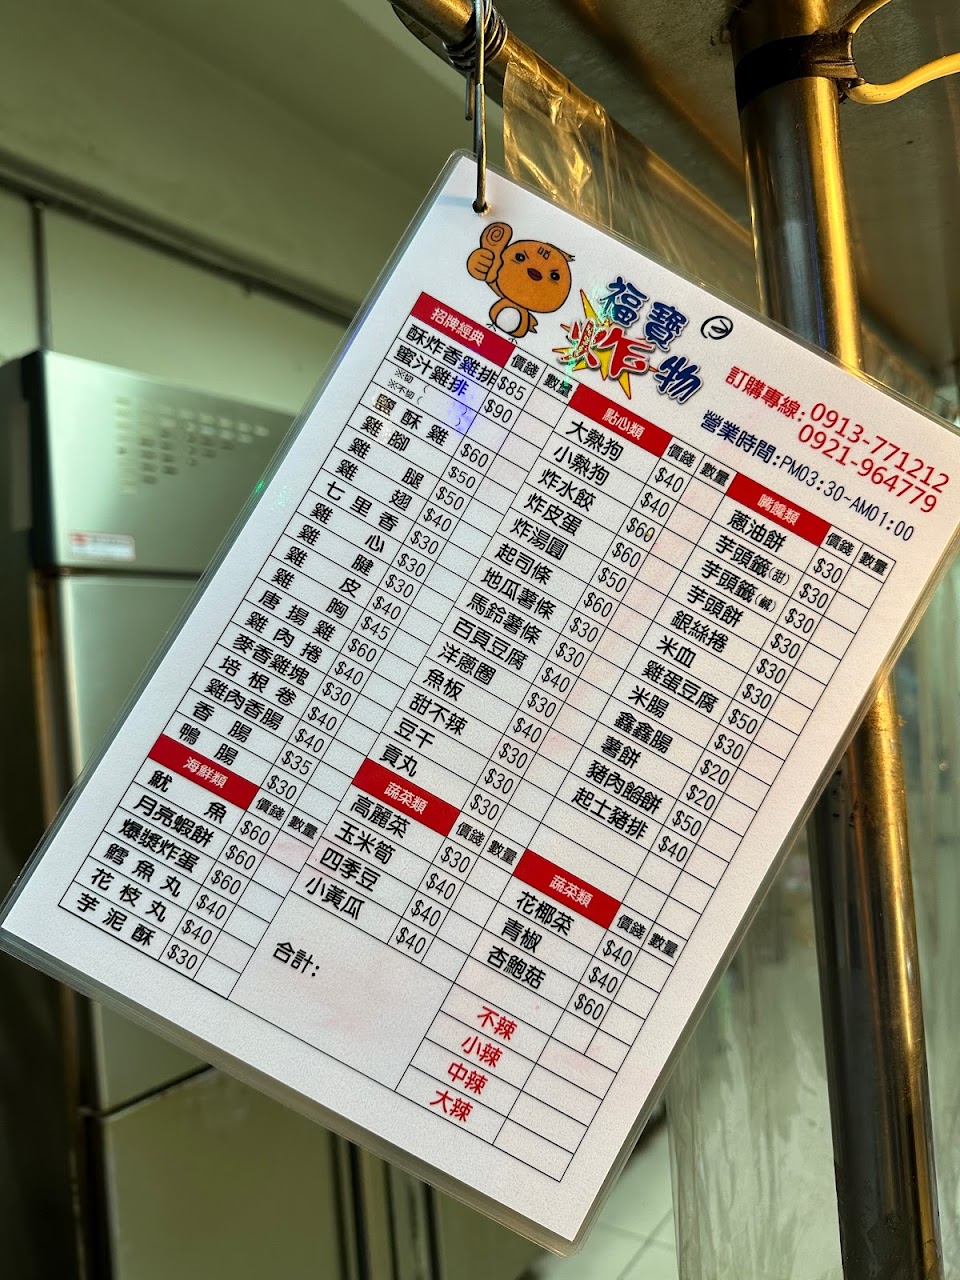 福寶
炸物
訂購專線:0913-771212
0921-964779
營業時間:PM03:30~AM01:00
招牌經典 價錢 數量
酥炸香雞排 $85
蜜汁雞排 $90
※切
※不切(
鹽酥雞 $60
雞腳 $50
雞腿 $50
雞翅 $40
七里香 $30
雞心 $30
雞腱 $30
雞皮 $40
雞胸 $45
唐揚雞 $60
雞肉捲 $40
麥香雞塊 $30
培根卷 $40
雞肉香腸 $40
香腸 $35
鴨腸 $30
海鮮類 價錢 數量
魷魚 $60
月亮蝦餅 $60
爆漿炸蛋 $60
鱈魚丸 $40
花枝丸 $40
芋泥酥 $30
點心類 價錢 數量
大熱狗 $40
小熱狗 $40
炸水餃 $60
炸皮蛋 $60
炸湯圓 $50
起司條 $60
地瓜薯條 $30
馬鈴薯條 $30
百頁豆腐 $40
洋蔥圈 $30
魚板 $40
甜不辣 $30
豆干 $30
貢丸 $30
蔬菜類 價錢 數量
高麗菜 $30
玉米筍 $40
四季豆 $40
小黃瓜 $40
合計:
嘴饞類 價錢 數量
蔥油餅 $30
芋頭籤(甜) $30
芋頭籤(鹹) $30
芋頭餅 $30
銀絲捲 $30
米血 $30
雞蛋豆腐 $50
米腸 $30
鑫鑫腸 $20
薯餅 $20
豬肉餡餅 $50
起士豬排 $40
蔬菜類 價錢 數量
花椰菜 $40
青椒 $40
杏鮑菇 $60
不辣
小辣
中辣
大辣